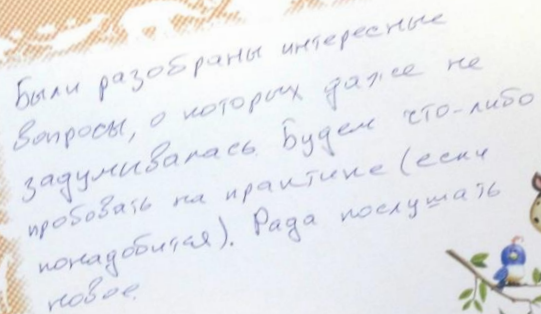 Были разобраны интересные
вопросы, о которых даже не
задумивалась. Будем что-либо
пробовать на практике (если
понадобится). Рада послушать
новое.